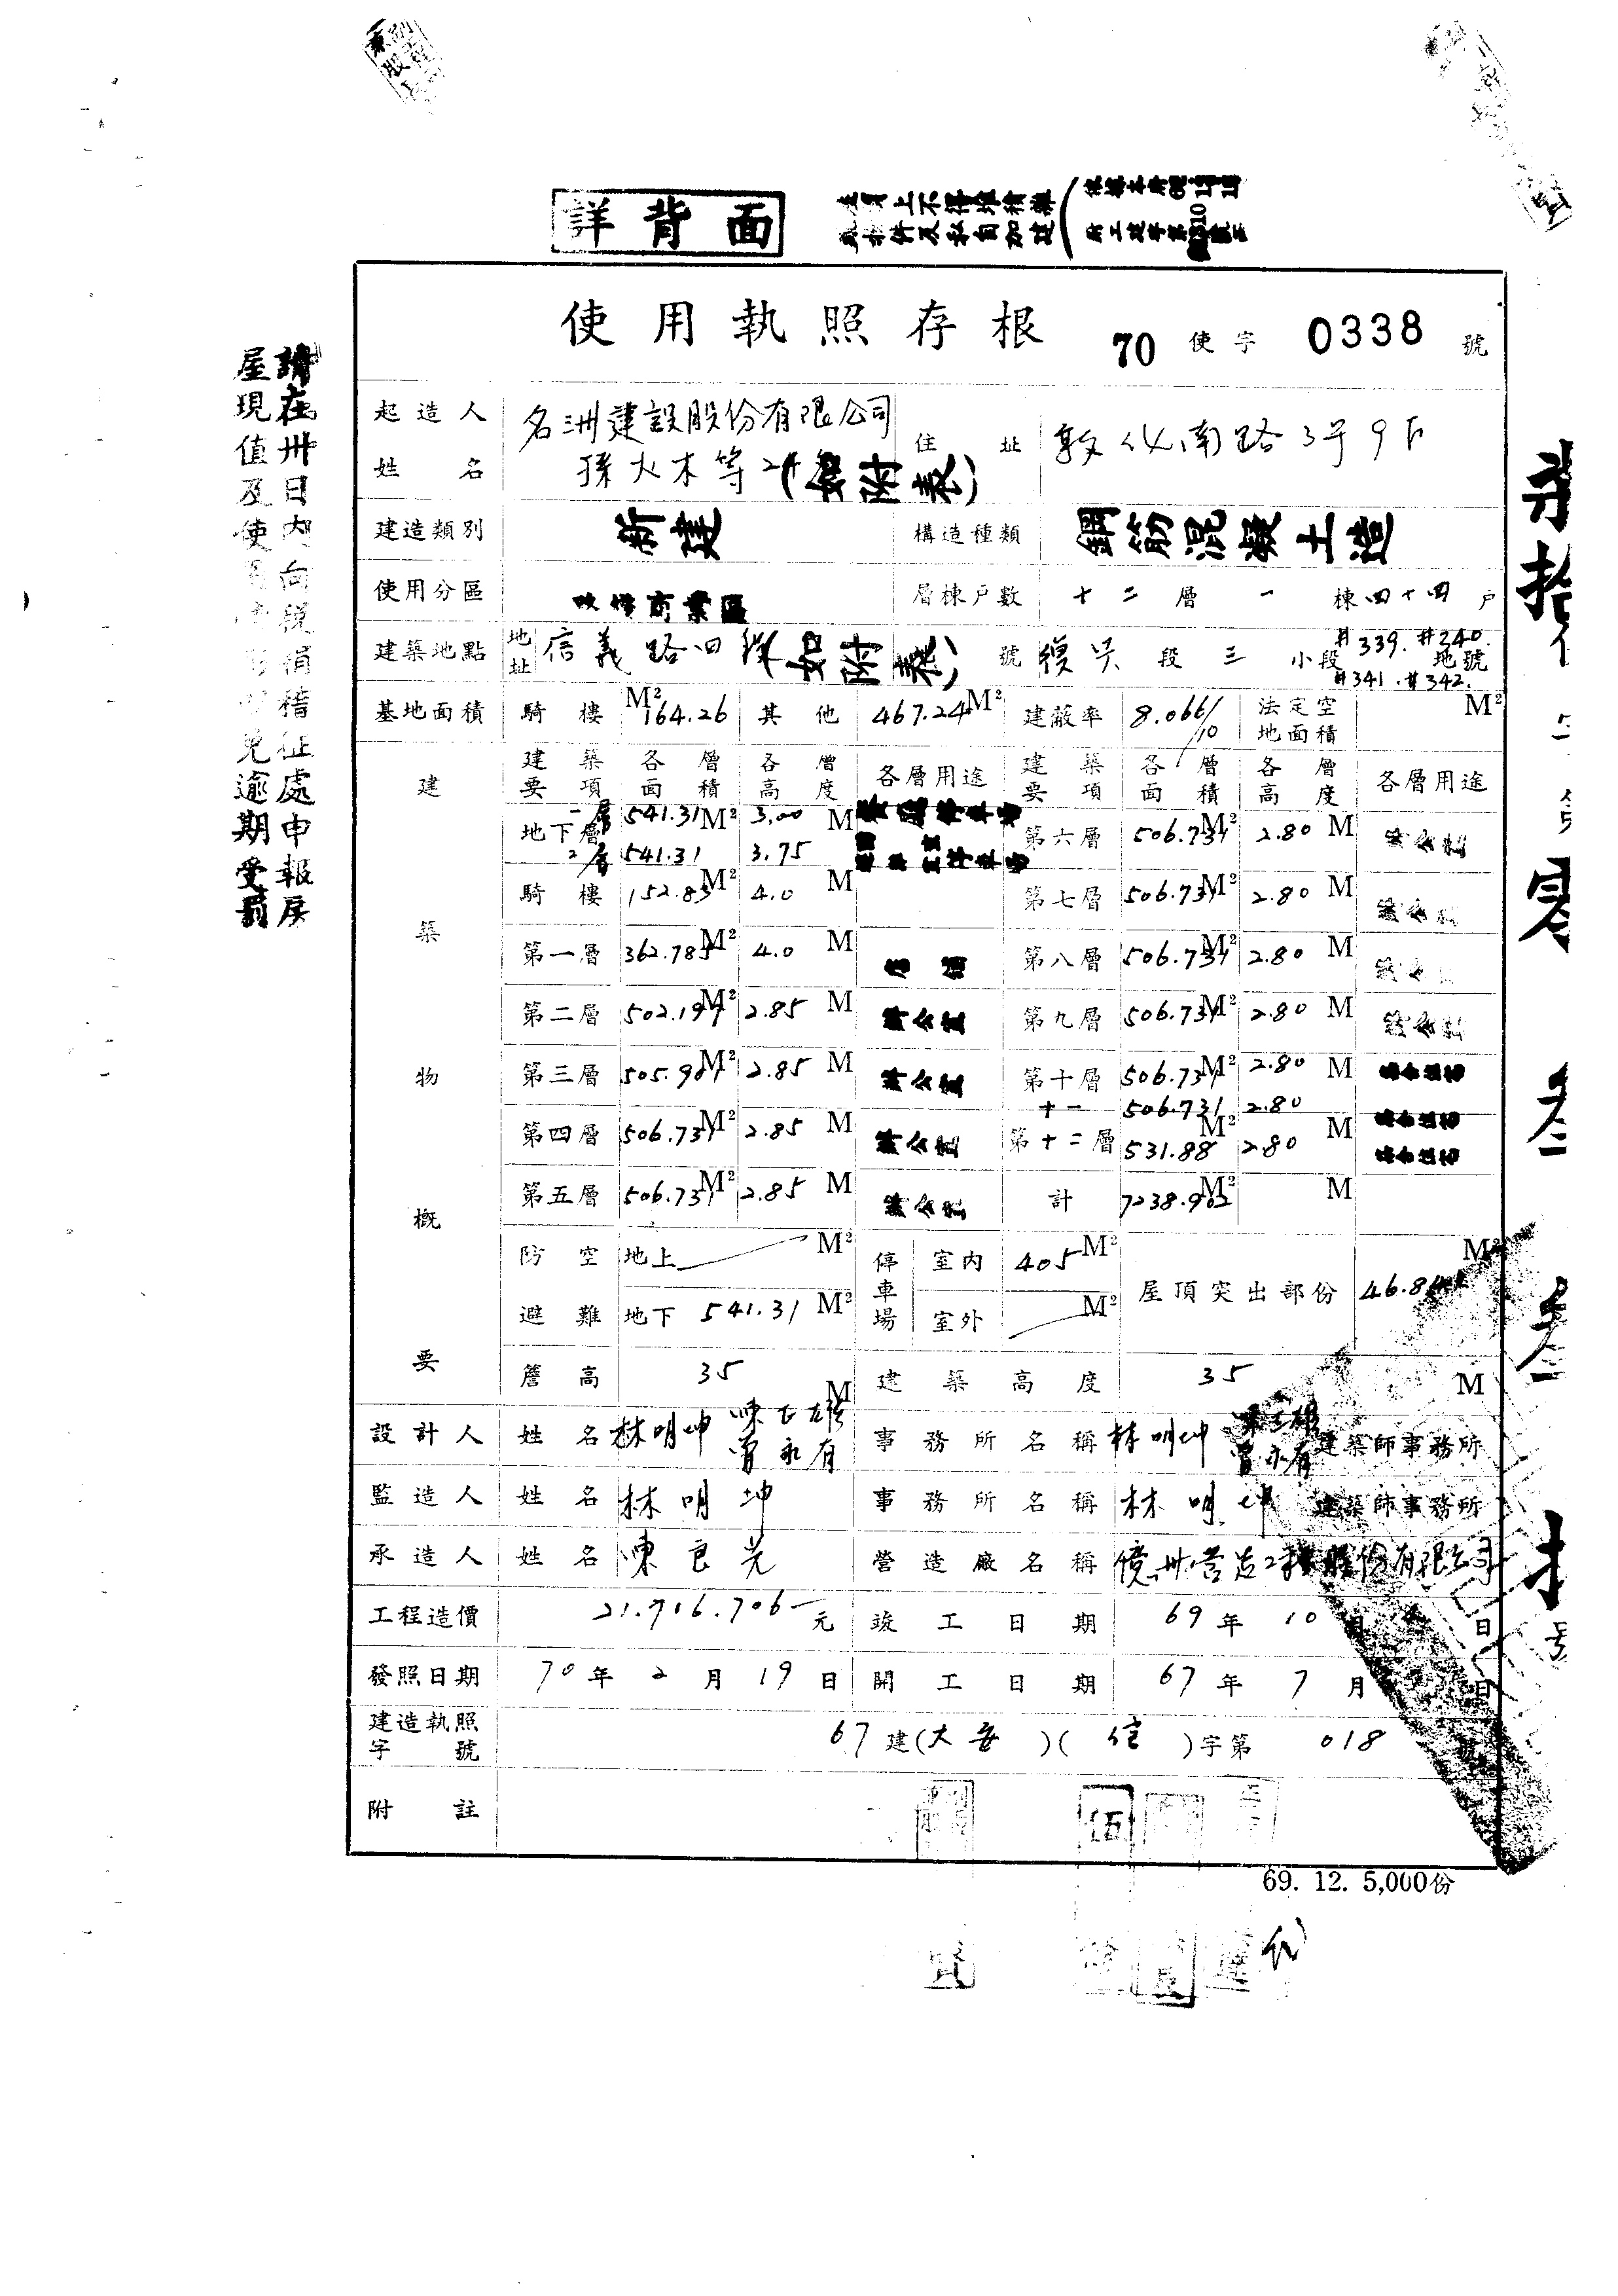 詳背面
屋頂上不得堆積雜
使用執照存根 70 使字 0338 號
起造人姓名 名洲建設股份有限公司 孫火木等 (如附表) 住址 敦化南路3号9F
建造類別 新建 構造種類 鋼筋混凝土造
使用分區 商業區 層棟戶數 十二層一棟四十四戶
建築地點 地址 信義路四段 (如附表) 號 復興段三小段 #339. #240. #341. #342. 地號
基地面積 騎樓 164.26 M² 其他 467.24 M² 建蔽率 8.066/10 法定空地面積 M²
建築物概要
建築要項 各層面積 各層高度 各層用途 建築要項 各層面積 各層高度 各層用途
地下層 一層 541.31 M² 3.00 M 第六層 506.731 M² 2.80 M
2層 541.31 3.75
騎樓 152.83 M² 4.0 M 第七層 506.731 M² 2.80 M
第一層 362.785 M² 4.0 M 第八層 506.731 M² 2.80 M
第二層 502.197 M² 2.85 M 辦公室 第九層 506.731 M² 2.80 M
第三層 505.981 M² 2.85 M 辦公室 第十層 506.731 M² 2.80 M
十一 506.731 2.80
第四層 506.731 M² 2.85 M 第十二層 531.88 M² 2.80 M
第五層 506.731 M² 2.85 M 計 7238.902 M² M
防空避難 地上 M² 停車場 室內 405 M² 屋頂突出部份 46.8 M²
地下 541.31 M² 室外 M²
簷高 35 M 建築高度 35 M
設計人 姓名 林明坤 陳正雄 曾永有 事務所名稱 林明坤 陳正雄 曾永有 建築師事務所
監造人 姓名 林明坤 事務所名稱 林明坤 建築師事務所
承造人 姓名 陳良光 營造廠名稱 億洲营造工程股份有限公司
工程造價 21.716.706 元 竣工日期 69年10月 日
發照日期 70年2月19日 開工日期 67年7月 日
建造執照字號 67建(大安)(信)字第 018 號
附註
69. 12. 5,000份
請在卅日內向稅捐稽征處申報房
屋現值及使 免逾期受罰